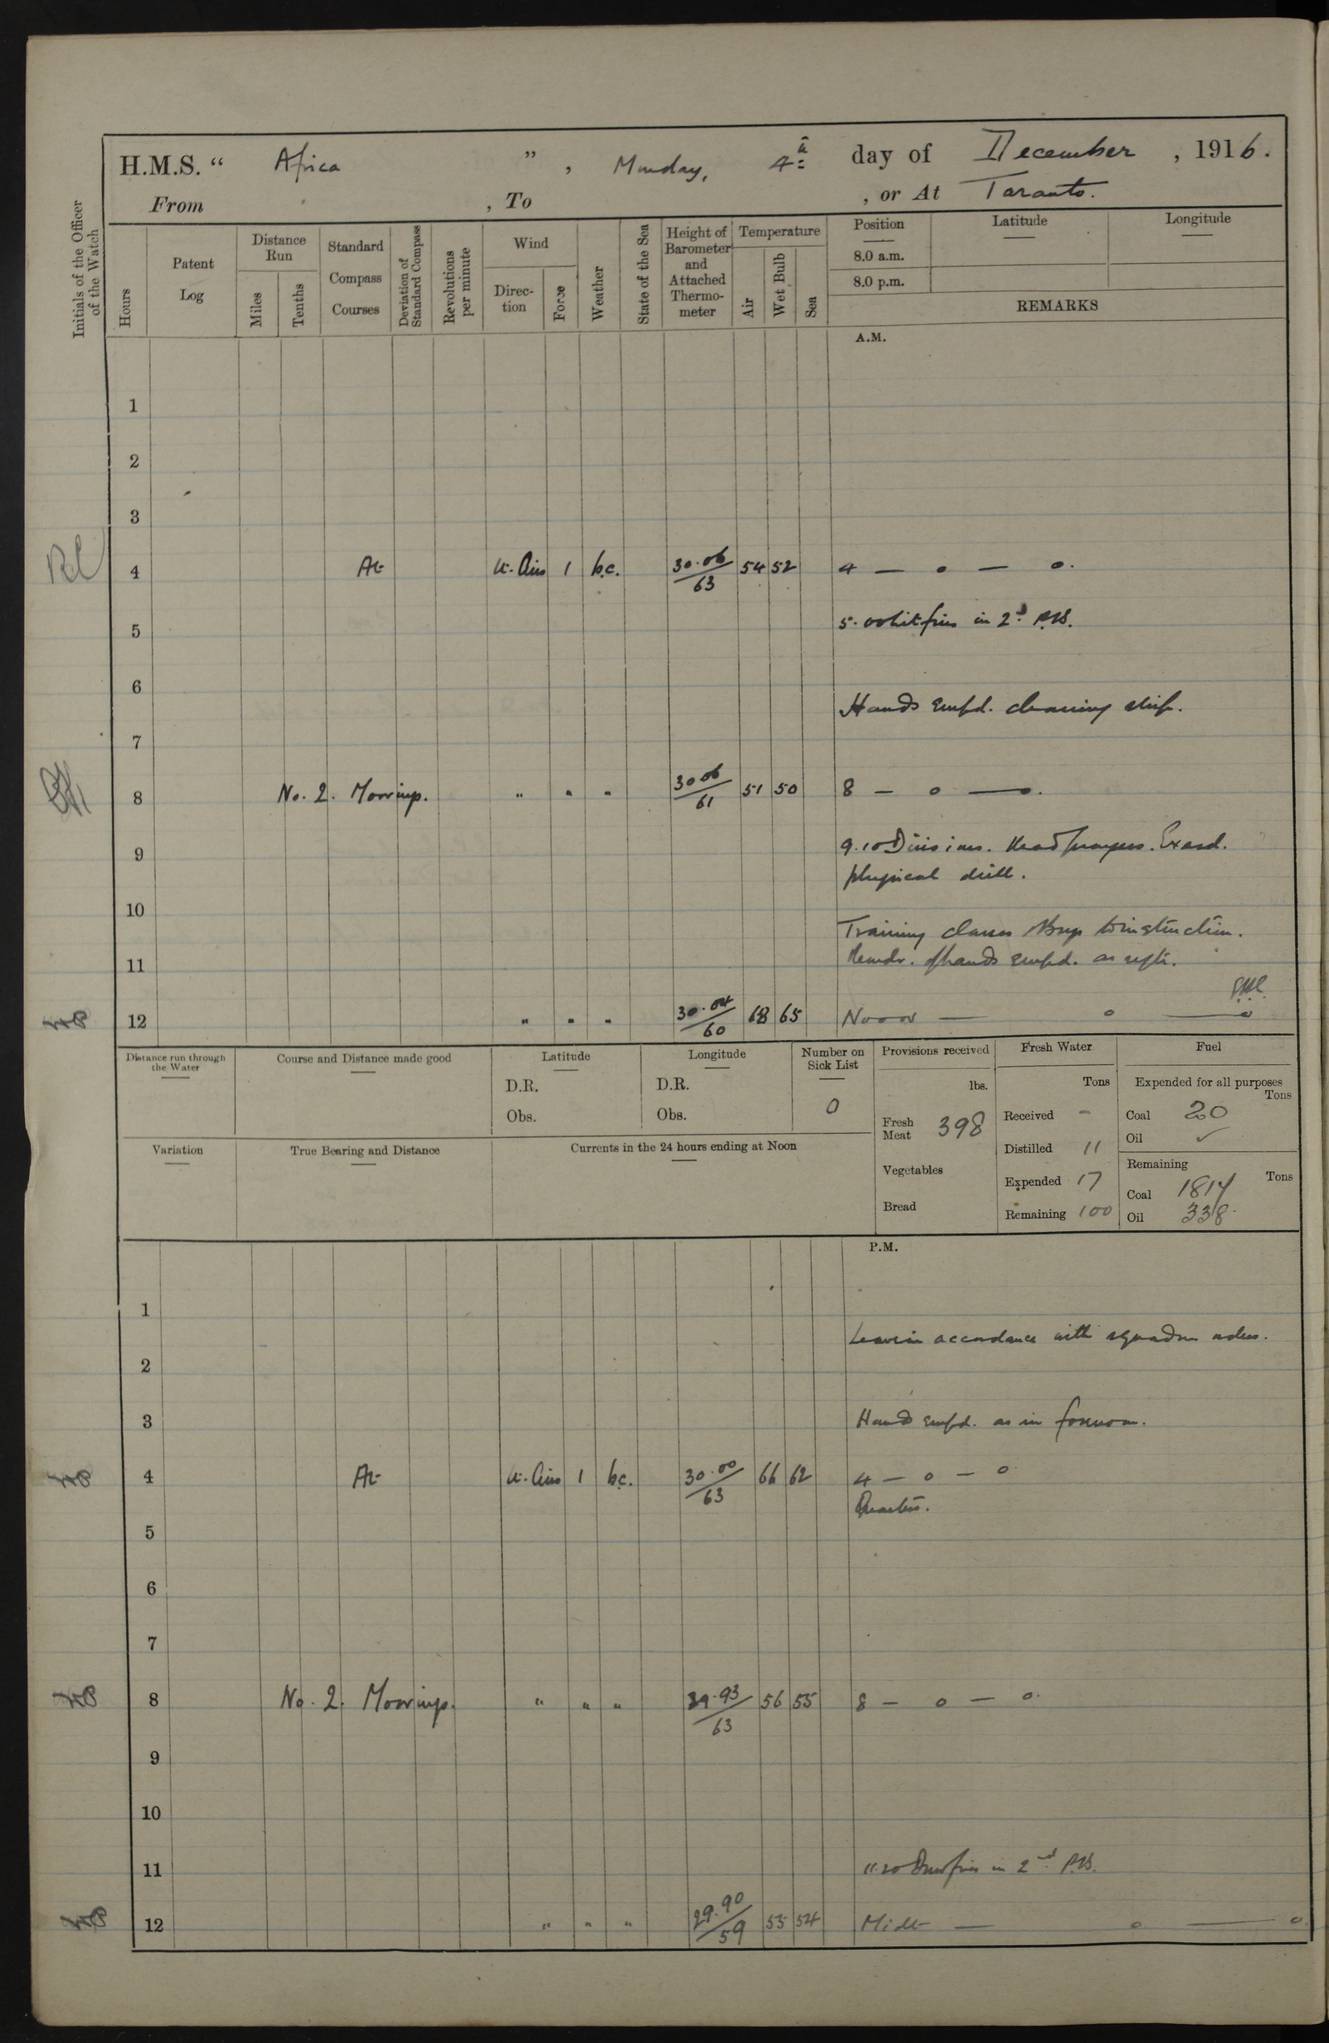 H.M.S. “ Africa ” , Monday, 4th day of December , 1916.
From , To , or At Taranto.
Initials of the Officer of the Watch
Hours
Patent Log
Distance Run
Miles
Tenths
Standard Compass Courses
Deviation of Standard Compass
Revolutions per minute
Wind
Direc-tion
Force
Weather
State of the Sea
Height of Barometer and Attached Thermo-meter
Temperature
Air
Wet Bulb
Sea
Position
8.0 a.m.
8.0 p.m.
Latitude
Longitude
REMARKS
A.M.
1
2
3
4 At Lt. Airs 1 b.c. 30.06/63 54 52 4 — o — o.
5 5.00 Lit fires in 2nd P.B.
6
Hands empd. cleaning ship.
7
8 No. 2. Moorings. " " " 30.06/61 51 50 8 — o — o.
9 9.10 Divisions. Read prayers. Exesd.
physical drill.
10 Training classes
11 Remdr. of hands empd. as reqte.
12 " " " 30.04/60 68 65 Noon — o — o
Distance run through the Water
Course and Distance made good
Latitude
D.R.
Obs.
Longitude
D.R.
Obs.
Number on Sick List
0
Provisions received
lbs.
Fresh Meat 398
Vegetables
Bread
Fresh Water
Tons
Received -
Distilled 11
Expended 17
Remaining 100
Fuel
Expended for all purposes
Tons
Coal 20
Oil ✓
Remaining
Tons
Coal 1814
Oil 338
Variation
True Bearing and Distance
Currents in the 24 hours ending at Noon
P.M.
1
Leave in accordance with squadron orders.
2
3 Hands empd. as in forenoon.
4 At Lt. Airs 1 b.c. 30.00/63 66 62 4 — o — o
Quarters.
5
6
7
8 No. 2. Moorings. " " " 29.93/63 56 55 8 — o — o.
9
10
11 11.20 Drew fires in 2nd P.B.
12 " " " 29.90/59 55 54 Midt — o — o